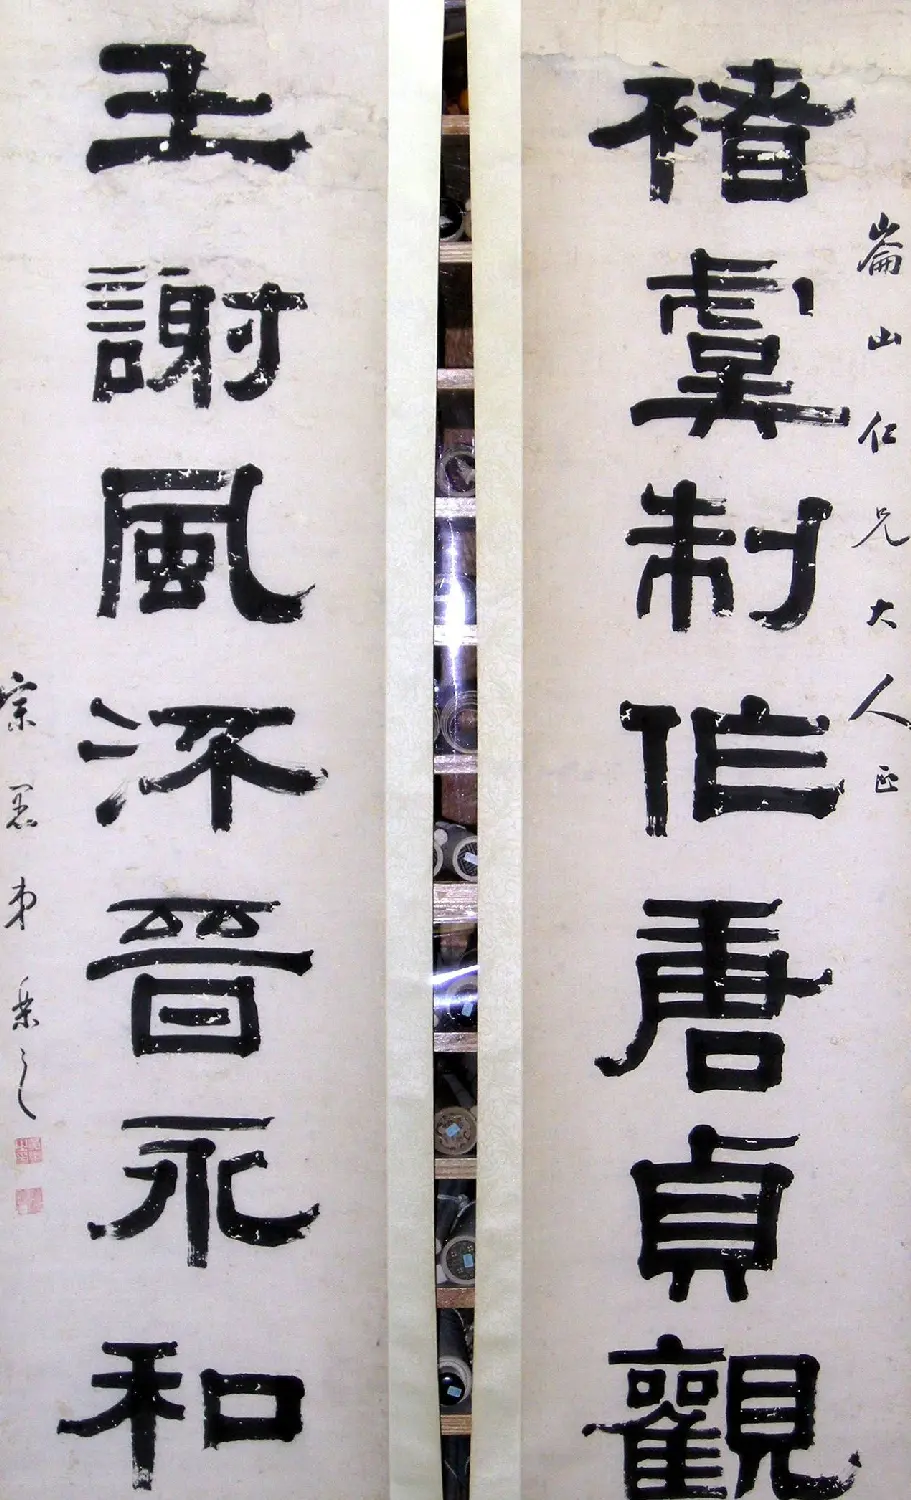 崙山仁兄大人正
褚虞制作唐貞觀
王謝風流晉永和
宗愚弟之